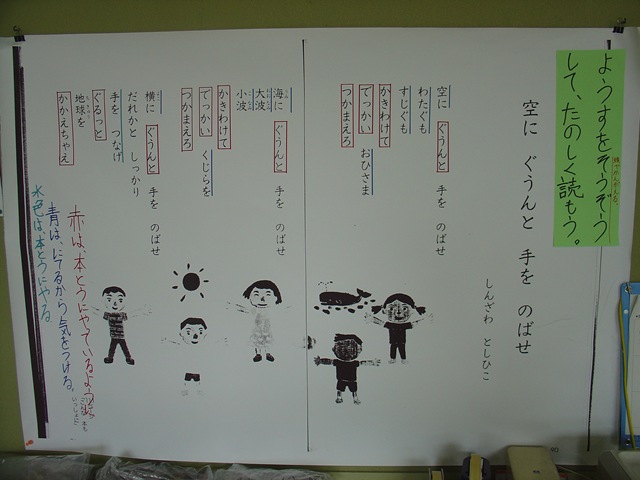 ようすをそうぞう
して、たのしく読もう。
空に ぐうんと 手を のばせ
しんざわ としひこ
空に ぐうんと 手を のばせ
わたぐも
すじぐも
かきわけて
でっかい おひさま
つかまえろ
海に ぐうんと 手を のばせ
大波
小波
かきわけて
でっかい くじらを
つかまえろ
横に ぐうんと 手を のばせ
だれかと しっかり
手を つなげ
ぐるっと
地球を
かかえちゃえ
赤は、本とうにやっているように
青は、にてるから気をつける。
水色は、本とうにやる